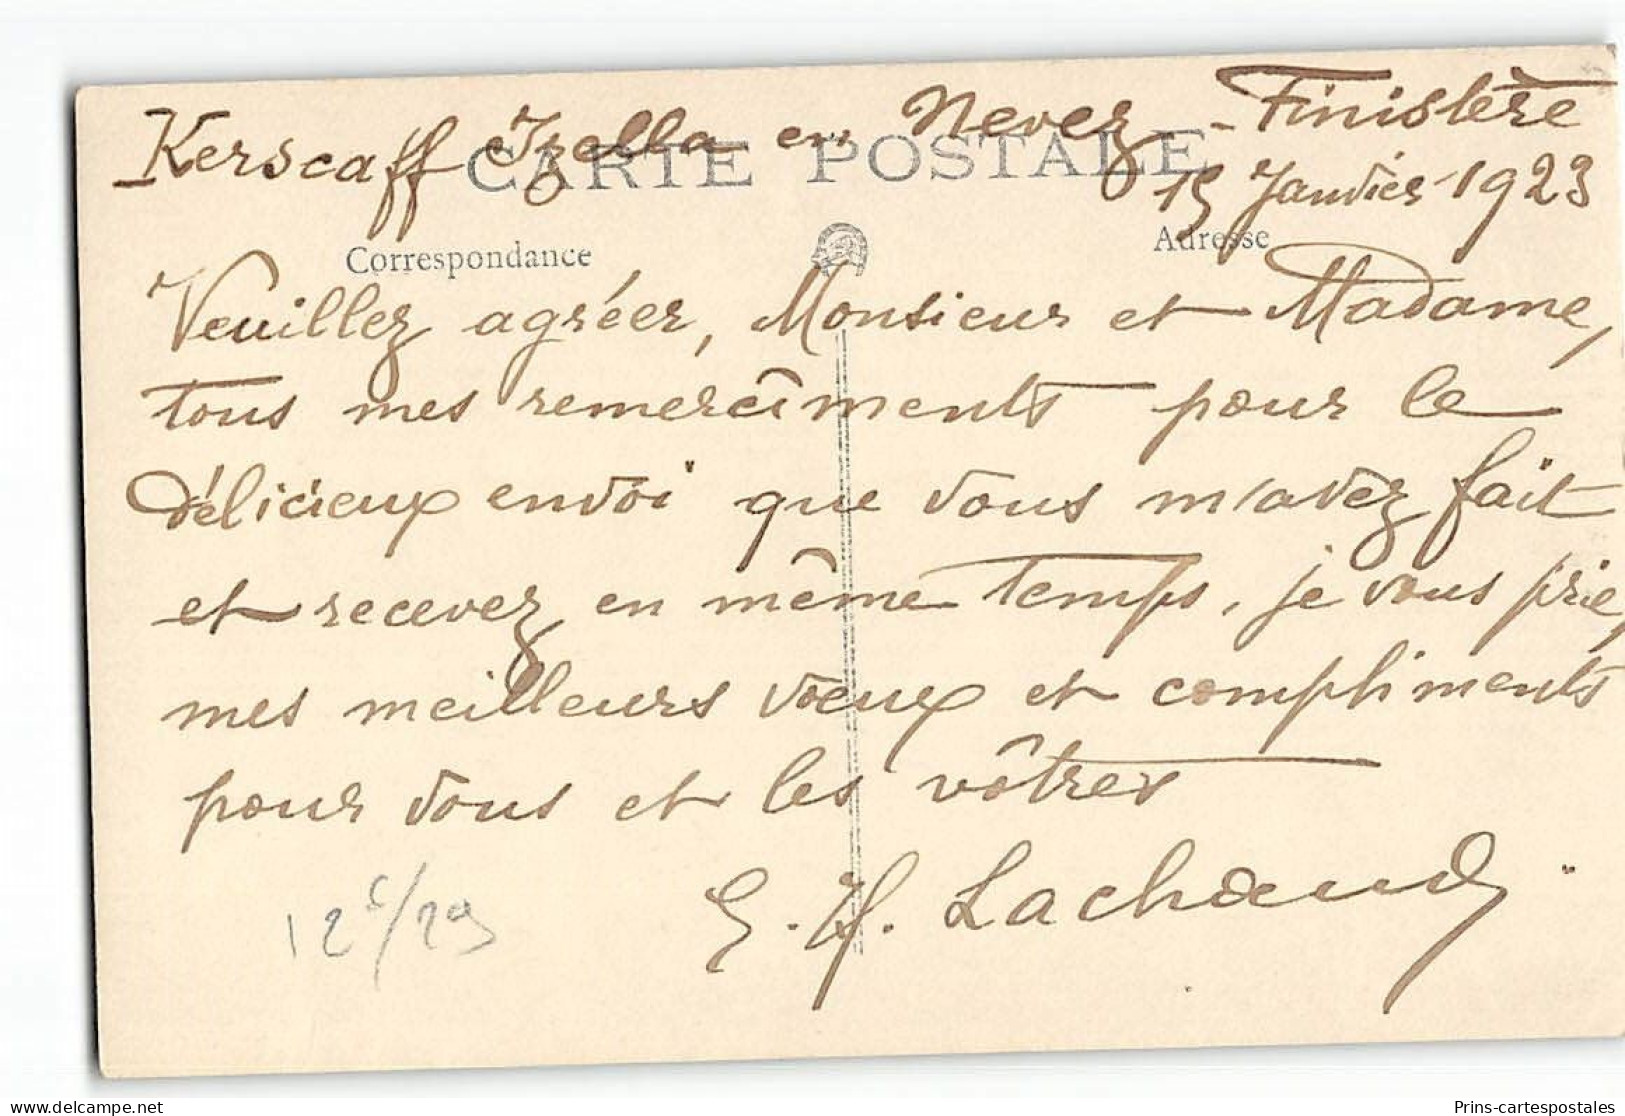 Kerscaff Izella en Nevez - Finistère
CARTE POSTALE
15 Janvier 1923
Correspondance
Adresse
Veuillez agréer, Monsieur et Madame,
tous mes remercîments pour le
délicieux envoi que vous m'avez fait
et recevez en même temps, je vous prie,
mes meilleurs vœux et compliments
pour vous et les vôtres
E. H. Lachaud
Prins-cartespostales